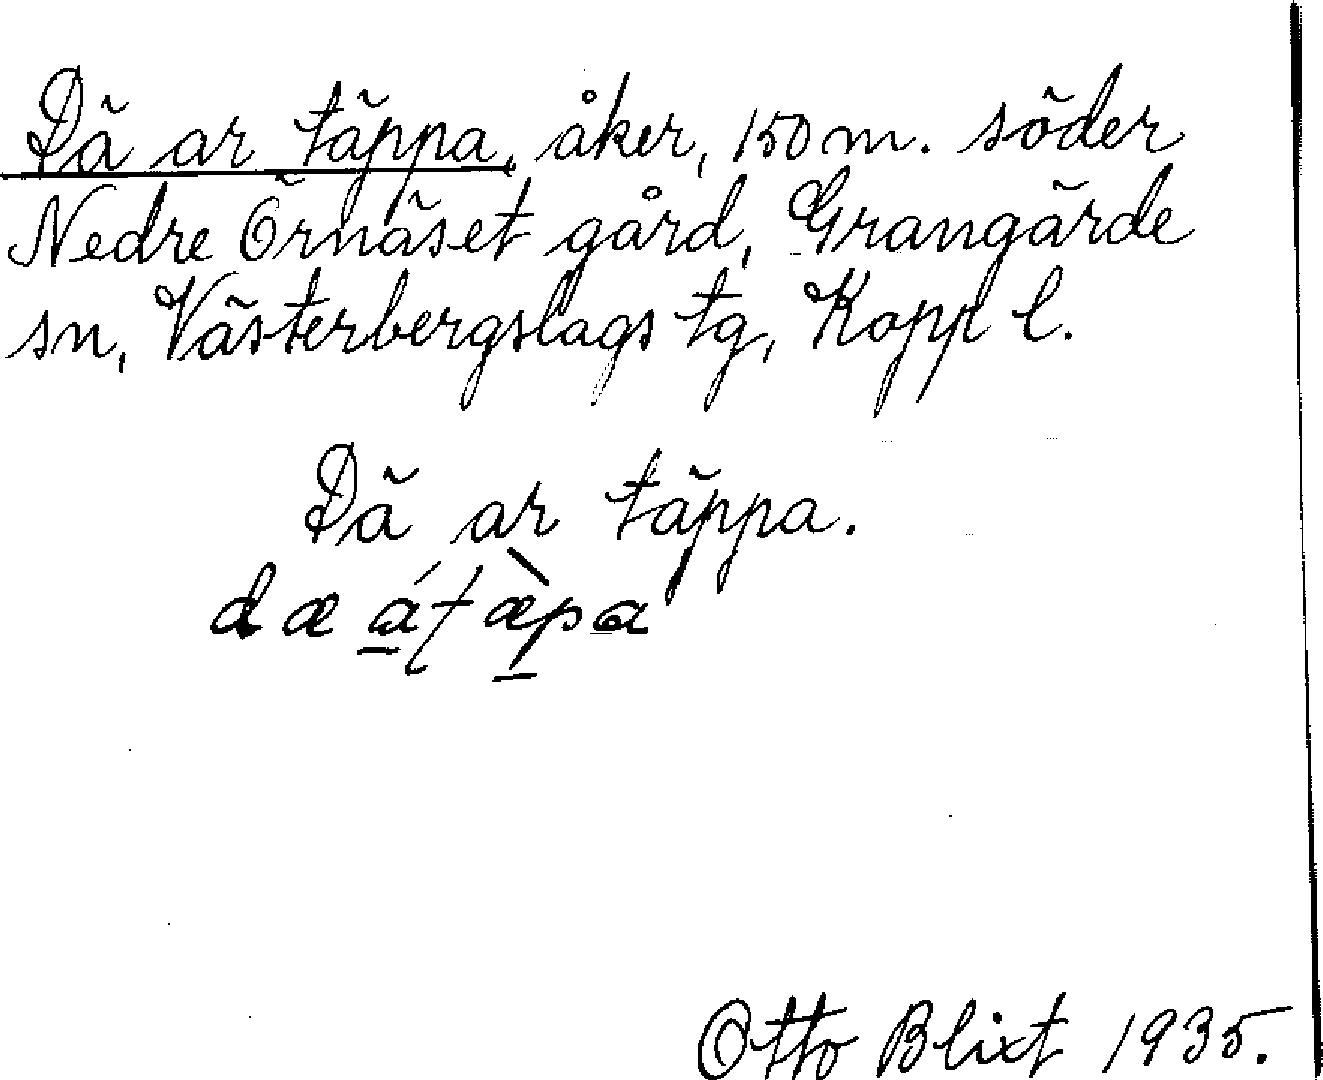 Dä ar täppa, åker, 150 m. söder
Nedre Örnäset gård, Grangärde
sn, Västerbergslags tg, Kopp l.
Dä ar täppa.
dæ á̱ tæ̀pa
Otto Blixt 1935.